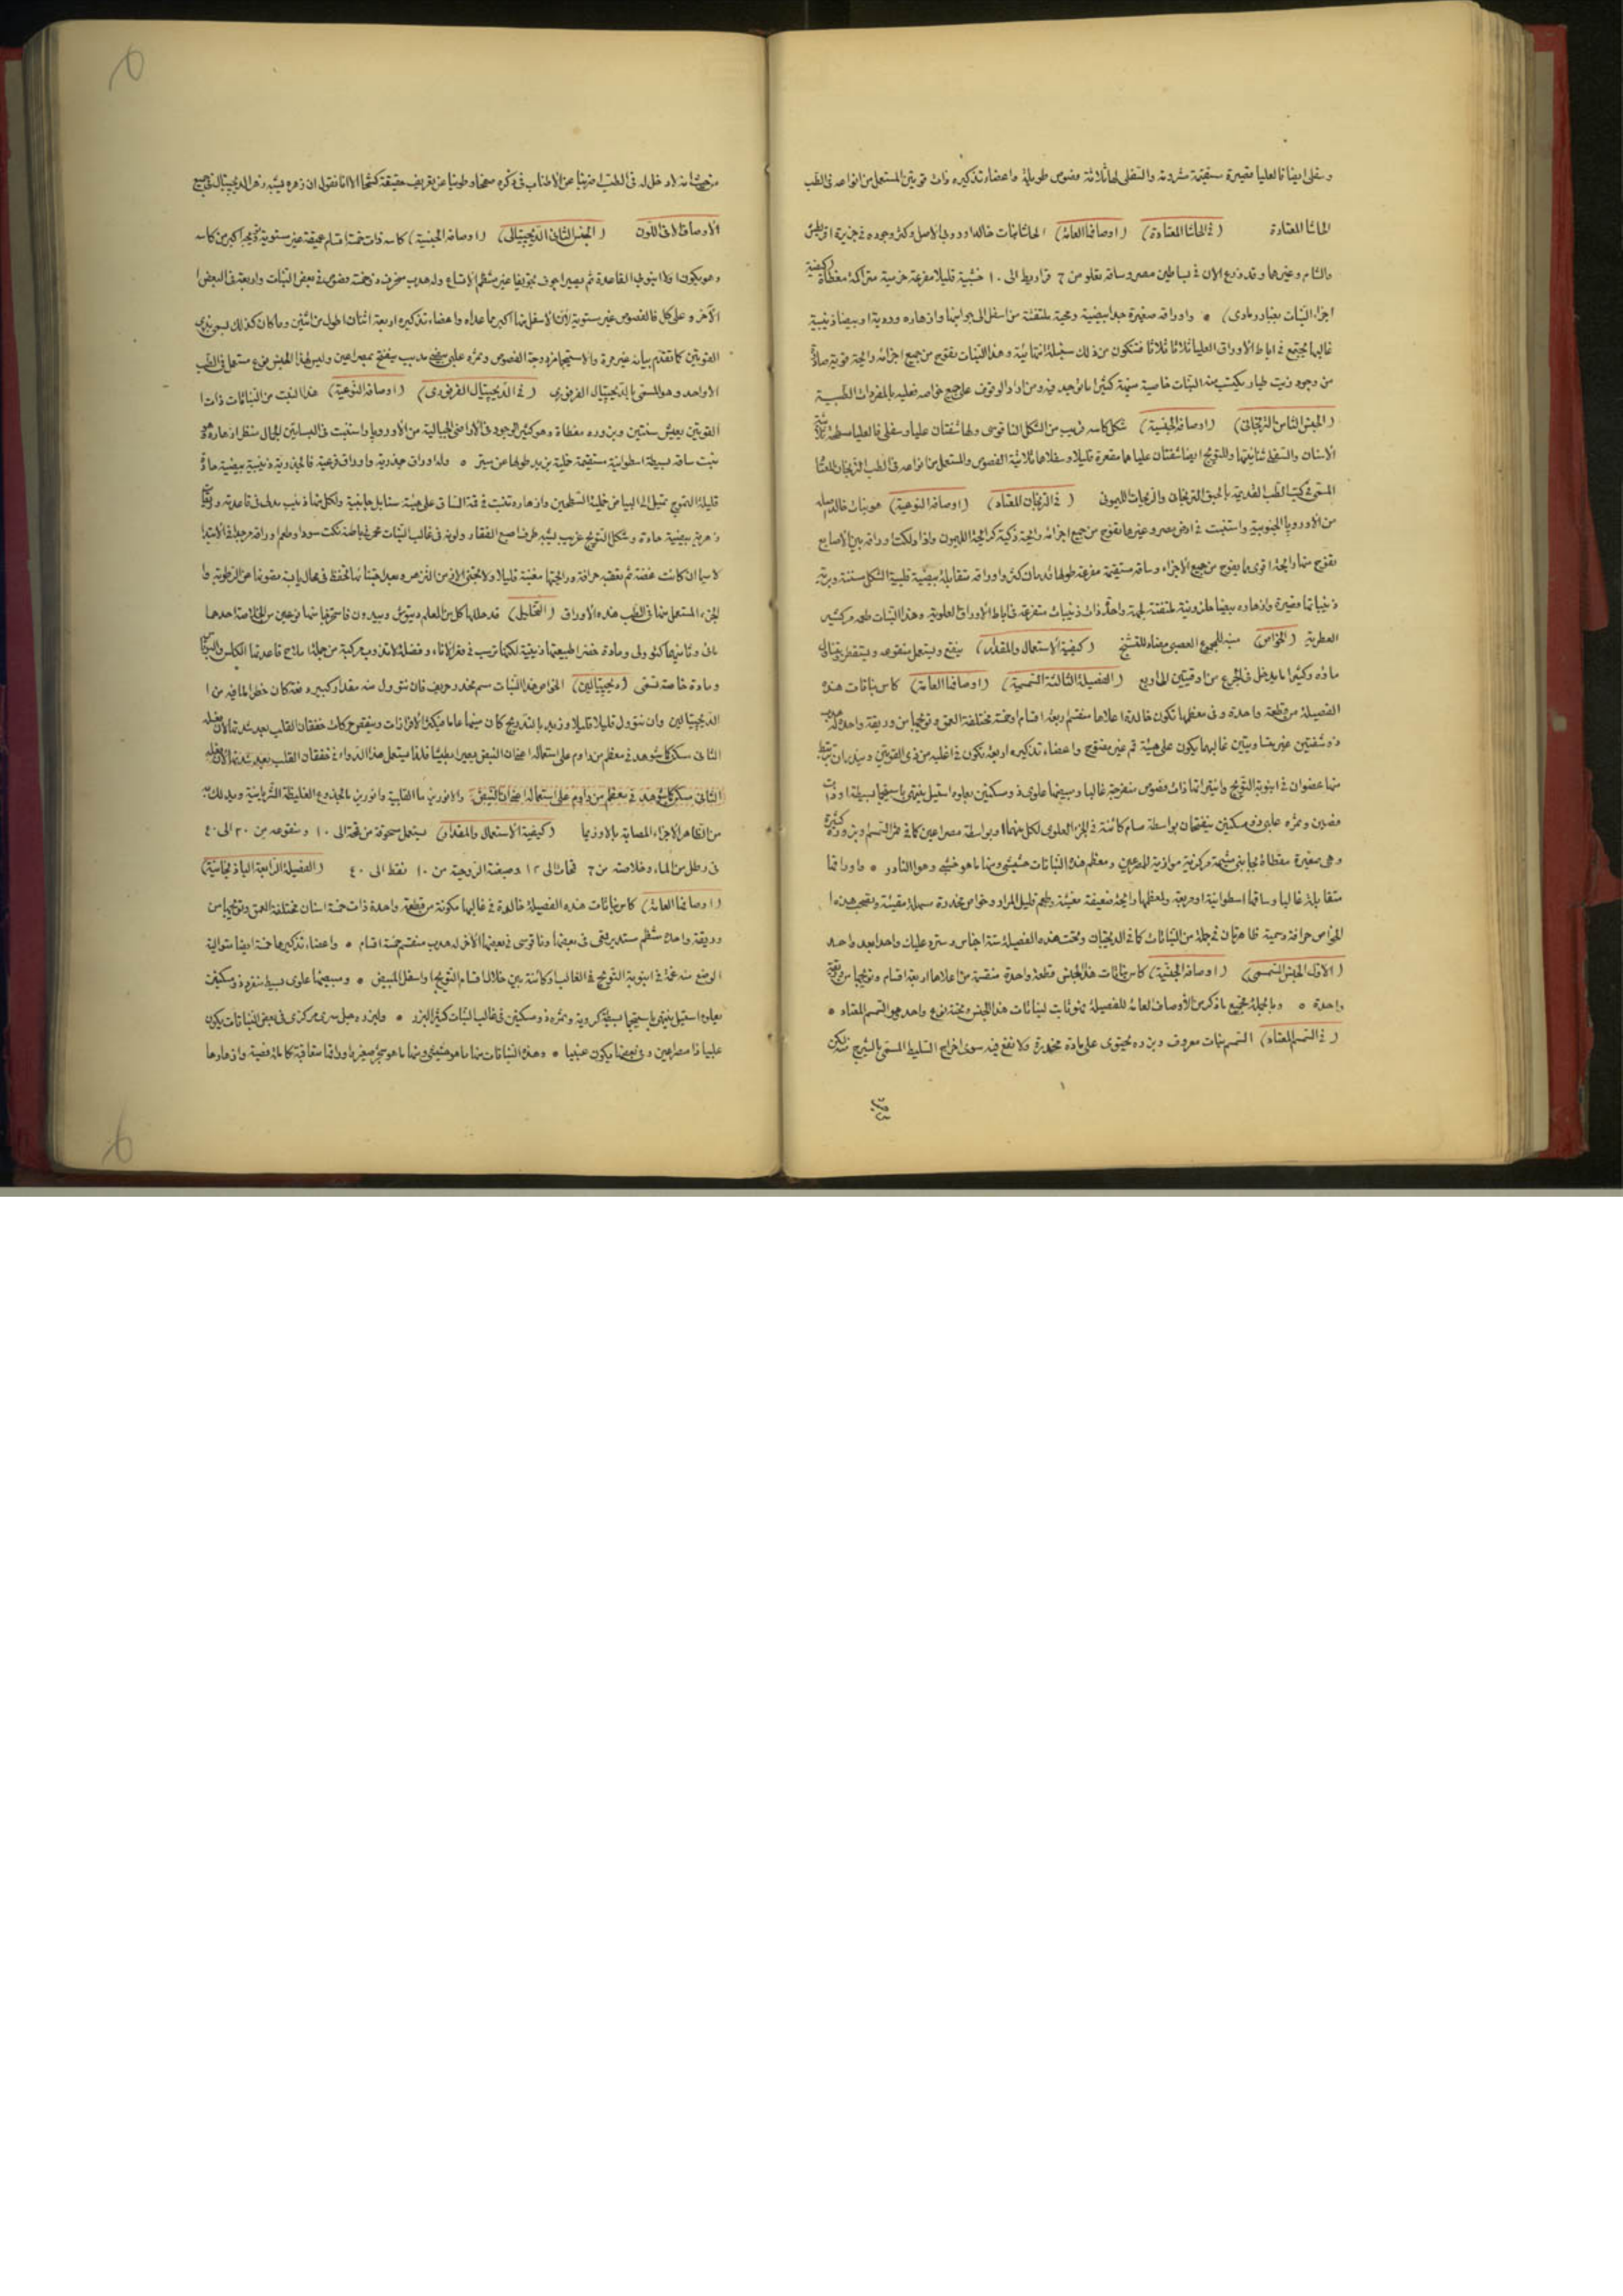 وسفلى ايضا فالعليا قصيرة مستقيمة مشرومة والسفلى لها ثلاثة فصوص طويلة واعضاء تذكيره ذات قوتين المستعمل من انواعه فى الطب
الحاشا المعتادة (فى الحاشا المعتادة) (اوصافها العامة) الحاشا نبات خالد اوروبى الاصل وكثر وجوده فى جزيرة
والشام وغيرهما وقد زرع الان فى بساطين مصر وساقه يعلو من ٦ قراريط الى ١٠ خشبية قليلا مفرعة حزمية متراكمة مغطاة
اجزاء النبات بغبار رمادى) ٥ واوراقه صغيرة جدا بيضية رمحية ملتفتة من اسفل الى جوانبها وازهاره وردية او بيضا ذنيبية
غالبها مجتمع فى اباط الاوراق العليا ثلاثا ثلاثا فتتكون من ذلك سنبلة انتهائية وهذا النبات يفوح من جميع اجزائه رائحة قوية
من وجود زيت طيار يكتسب منه النبات خاصية منبهة كثيرا ما توجد فيه ومن اراد الوقوف على جميع خواصه فعليه بالمفردات الطبية
(الجنس الثامن الترنجانى) (اوصافه الجنسية) شكل كاسه قريب من الشكل الناقوسى ولها شفتان عليا وسفلى فالعليا مسطحة
الاسنان والسفلى ثنائيتها وللتويج ايضا شفتان علياهما مقعرة قليلا وسفلاهما ثلاثية الفصوص والمستعمل من انواعه فى الطب الترنجان المعتاد
المسمى فى كتب الطب القديمة بالحبق الترنجان والريحان الليمونى (فى الترنجان المعتاد) (اوصافه النوعية) هو نبات خالد اصله
من الاوروبا الجنوبية واستنبت فى ارض مصر وغيرها يفوح من جميع اجزائه رائحة ذكية كرائحة الليمون واذا دلكت اوراقه بين الاصابع
يفوح منها رائحة اقوى مما يفوح من جميع الاجزاء وساقه مستقيمة مفرعة طولها قدمان كذا واوراقه متقابلة بيضية قلبية الشكل مسننة وبرية
ذنيباتها قصيرة وازهاره بيضا حلزونية ملتفتة لجهة واحدة ذات ذنيبات متفرعة فى اباط الاوراق العلوية وهذا النبات طعمه كثير
العطرية (الخواص) منبه للمجموع العصبى مضاد للتشنج (كيفية الاستعمال والمقدار) ينقع ويستعمل منقوعه ويستقطر
ماؤه وكثيرا ما يدخل فى الجرع من اوقيتين الى اربع (الفصيلة الثالثة السمسمية) (اوصافها العامة) كاس نباتات هذه
الفصيلة من قطعة واحدة وفى معظمها تكون خالدة اعلاها منقسم اربعة اقسام او خمسة مختلفة العمق وتويجها من وريقة واحدة
ذو شفتين غير متساويتين غالبهما يكون على هيئة فم غير مفتوح واعضاء تذكيره اربعة تكون فى اغلبه من ذى القوتين
منها عضوان فى انبوبة التويج وانثيراتها ذات فصوص منفرجة غالبا ومبيضها علوى ذو مسكنين يعلوه استيل ينتهى باستيجما بسيطة او ذات
فصين وثمره علبى ذو مسكنين ينفتحان بواسطة مسام كائنة فى الجزء العلوى لكل منهما او بواسطة مصراعين كما فى ثمر السمسم وبزوره كثيرة
وهى صغيرة مغطاة بجانبى مشيمة مركزية موازية للمصرعين ومعظم هذه النباتات حشيشى ومنها ما هو خشبى وهو النادر ٥ واوراقها
متقابلة غالبا وساقها اسطوانية او مربعة ولمعظمها رائحة ضعيفة مغثية وطعم قليل المرار وخواص مخدرة مسهلة مقيئة وتصحب هذه
الخواص حرافة وسمية ظاهرتان فى جملة من النباتات كما فى الديجيتال وتحت هذه الفصيلة ستة اجناس وسترد عليك واحدا بعد واحد
(الاول الجنس السمسمى) (اوصافه الجنسية) كاس نباتات هذا الجنس قطعة واحدة منقسمة من اعلاها اربعة اقسام وتويجها من وريقة
واحدة ٥ وبالجملة فجميع ما ذكر من الاوصاف العامة للفصيلة ثابت لنباتات هذا الجنس وتحته نوع واحد هو السمسم المعتاد ٥
(فى السمسم المعتاد) السمسم نبات معروف وبزره يحتوى على مادة مخدرة ولا نفع فيه سوى اخراج السليط المسمى بالشيرج منه لكن
من حيث انه لا دخل له فى الطب ضربنا عن الاطناب فى ذكره صفحا وطوينا عن تعريف حقيقته كشحا الا انا نقول ان زهره يشبه زهر الديجيتال فى جميع
الاوصاف الا فى اللون (الجنس الثانى الديجيتالى) (اوصافه الجنسية) كاسه ذات خمسة اقسام عميقة غير مستوية تويجه اكبر من كاسه
وهو يكون اولا انبوبى القاعدة ثم يصير اجوف تجويفا غير منتظم الاتساع وله هدب منحرف ذو خمسة فصوص فى بعض النبات واربعة فى البعض
الآخر وعلى كل فالفصوص غير مستوية لان الاسفل منها اكبر مما عداه واعضاء تذكيره اربعة اثنتان اطول من اثنتين وما كان كذلك يسمى بذى
القوتين كما تقدم بيانه غير مرة والاستيجما مزدوجة الفصوص وثمره علبى بيضى مدبب ينفتح بمصراعين وليس لهذا الجنس نوع مستعمل فى الطب
الا واحد وهو المسمى بالديجيتال الفرفورى (فى الديجيتال الفرفورى) (اوصافه النوعية) هذا النبت من النباتات ذات
القوتين يعيش سنتين وبزوره مغطاة وهو كثير الوجود فى الاراضى الجبالية من الاوروبا واستنبت فى البساتين لجمال منظر ازهاره
ينبت ساقه بسيطة اسطوانية مستقيمة خملية يزيد طولها عن ميتر ٥ وله اوراق جذرية واوراق فرعية فالجذرية ذنيبية بيضية حادة
قليلة التموج تميل الى البياض خملية السطحين وازهاره تنبت فى قمة الساق على هيئة سنابل جانبية ولكل منها ذنيب
زهرية بيضية حادة وشكل التويج غريب يشبه طرف اصبع القفاز ولونه فى غالب النبات محمر فى باطنه نكت سودا وطعم اوراقه مر جدا فى الابتدا
لاسيما ان كانت غضة ثم تعقبه حرافة ورائحتها مغثية قليلا ولا تجتنى الا فى زمن التزهر وبعد جنيها تحفظ فى محال يابسة مصونة عن الرطوبة
الجزء المستعمل منها فى الطب هذه الاوراق (التحليل) قد حللها كل من المعلم ديتوش وبيدون فاستخرجا منها نوعين من الخلاصة احدهما
مائى وثانيهما كئولى ومادة خضرا طبيعتها زيتية لكنها ترسب فى قعر الاناء وفضلة لا تذوب مركبة من جملة املاح قاعدتها الكلس
ومادة خاصة تسمى (ديجيتالين) الخواص هذا النبات سم مخدر حريف فان تنوول منه مقدار كبير دفعة كان خطرا لما فيه من
الديجيتالين وان تنوول قليلا قليلا وزيد بالتدريج كان منبها عاما فيكثر الافرازات وينقص حركات خفقان القلب بعد شدتها
الثانى سكر كما شوهد فى معظم من داوم على استعماله اعنى ان النبض يصير بطيئا فلذا يستعمل هذا الدواء فى خفقان القلب
الثانى سكر كما شوهد فى معظم من داوم على استعماله اعنى ان النبض والانوريزما القلبية وانوريزما الجذوع الغليظة الشريانية
من الظاهر الاجزاء المصابة بالاوزيما (كيفية الاستعمال والمقدار) يستعمل مسحوقه من قمحة الى ١٠ ومنقوعه من ٢٠ الى ٤٠
فى رطل من الماء وخلاصته من ٦ قمحات الى ١٢ وصبغته الروحية من ١٠ نقط الى ٤٠ (الفصيلة الرابعة الباذنجانية)
(اوصافها العامة) كاس نباتات هذه الفصيلة خالدة فى غالبها مكونة من قطعة واحدة ذات خمسة اسنان مختلفة العمق وتويجها من
وريقة واحدة منتظم مستدير بقى فى بعضها وناقوسى فى بعضها الآخر له هدب منقسم خمسة اقسام ٥ واعضاء تذكيرها خمسة ايضا متوالية
الوضع مندغمة فى انبوبة التويج فى الغالب او كائنة بين خلال اقسام التويج او اسفل المبيض ٥ ومبيضها علوى بسيط منفرد ذو مسكنين
يعلوه استيل ينتهى باستيجما بسيطة كروية وثمره ذو مسكنين فى غالب النبات كثير البزر ٥ ولبزره حبل سرى مركزى فى بعض النباتات يكون
علبيا ذا مصراعين وفى بعضها يكون عنبيا ٥ وهذه النباتات منها ما هو حشيشى ومنها ما هو شجر صغير واوراقها متعاقبة كاملة او فصية وازهارها